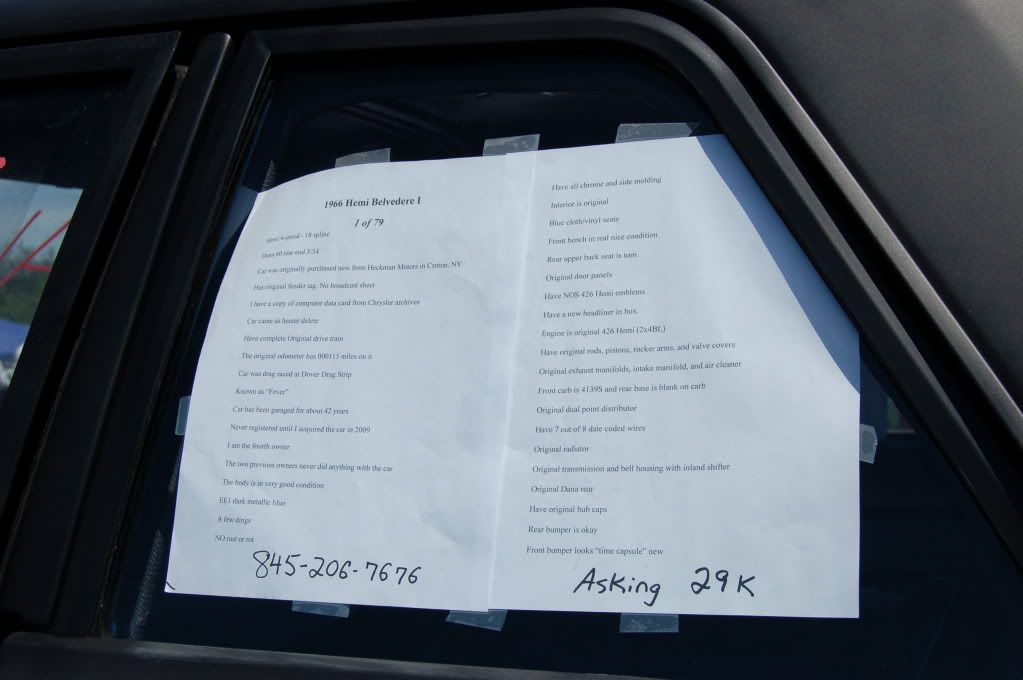 1966 Hemi Belvedere I
1 of 79
Hemi 4-speed - 18 spline
Dana 60 rear end 3:54
Car was originally purchased new from Heckman Motors in Croton, NY
Has original fender tag. No broadcast sheet
I have a copy of computer data card from Chrysler archives
Car came as heater delete
Have complete Original drive train
The original odometer has 000115 miles on it
Car was drag raced at Dover Drag Strip
Known as "Fever"
Car has been garaged for about 42 years
Never registered until I acquired the car in 2009
I am the fourth owner
The two previous owners never did anything with the car
The body is in very good condition
EE1 dark metallic blue
A few dings
NO rust or rot
845-206-7676
Have all chrome and side molding
Interior is original
Blue cloth/vinyl seats
Front bench in real nice condition
Rear upper back seat is torn
Original door panels
Have NOS 426 Hemi emblems
Have a new headliner in box
Engine is original 426 Hemi (2x4BL)
Have original rods, pistons, rocker arms, and valve covers
Original exhaust manifolds, intake manifold, and air cleaner
Front carb is 4139S and rear base is blank on carb
Original dual point distributor
Have 7 out of 8 date coded wires
Original radiator
Original transmission and bell housing with inland shifter
Original Dana rear
Have original hub caps
Rear bumper is okay
Front bumper looks "time capsule" new
Asking 29K